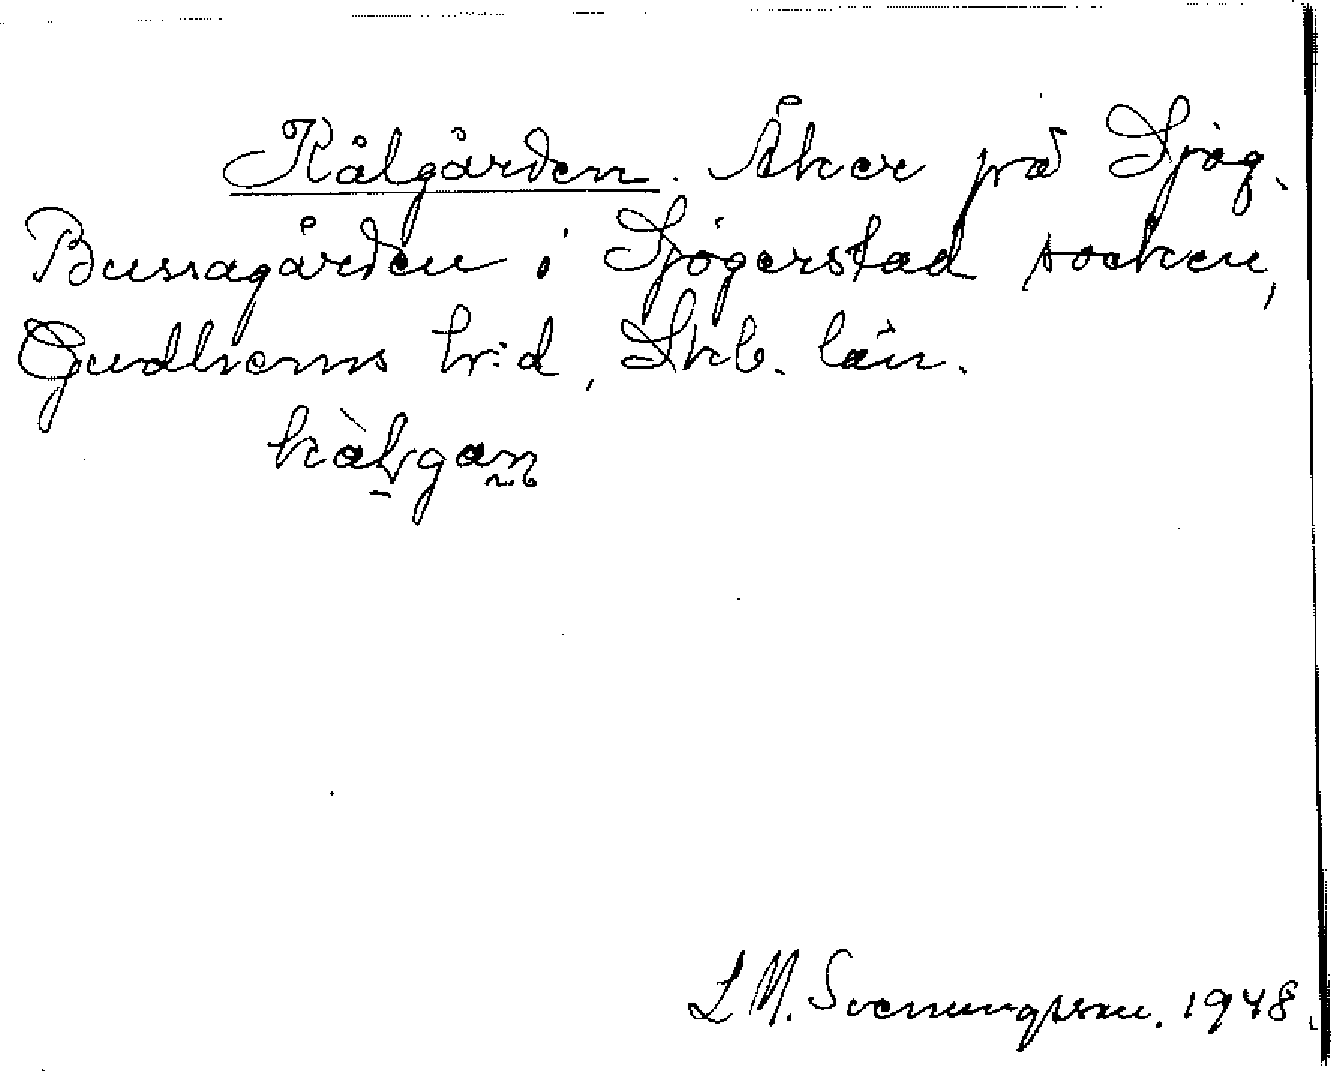 Kålgården. Åker på Sjög.
Bussagården i Sjögerstad socken,
Gudhems h:d, Skb. län.
L M. Svenungsson. 1948.